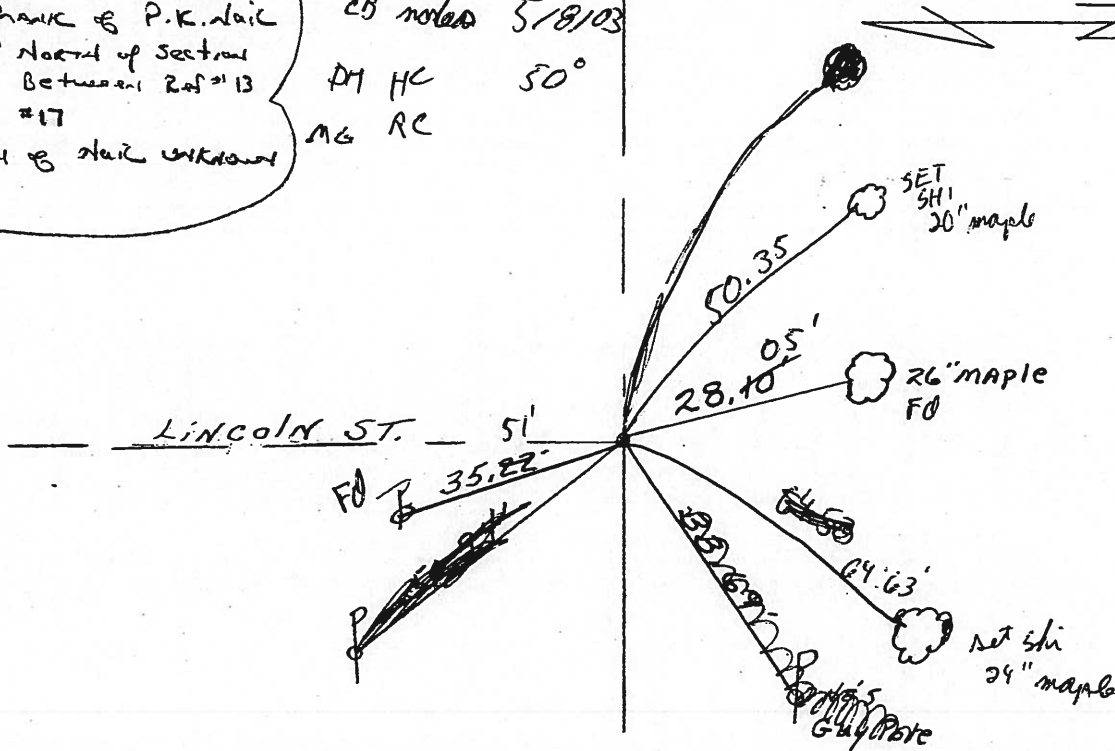 of P.K. Nail
North of Section
Between Ref #13
#17
of Nail unknown
CB notes 5/8/03
DH HC 50°
MG RC
SET
SHI
20" maple
50.35
05'
28.10'
26" MAPLE
FD
LINCOLN ST.
51'
35.22'
FD P
64.63'
set shi
24" maple
38.69
P
P
Guy Pole